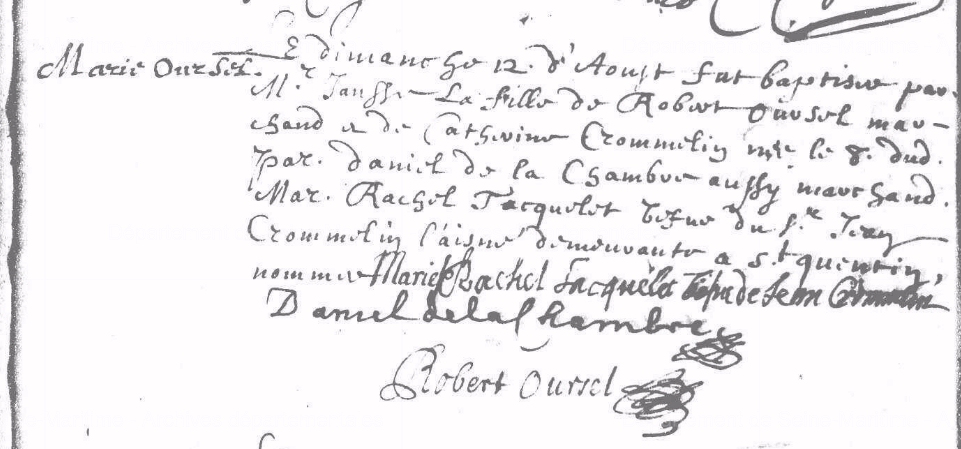 Marie Oursel.
Le dimanche 12. d'Aoust fut baptisee par
Mr. Jansse La fille de Robert Oursel mar-
chand et de Catherine Crommelin née le 8. dud.
Par. Daniel de la Chambre aussy marchand.
Mar. Rachel Tacquelet vefue du Sr. Jean
Crommelin l'aisné demeurante a St quentin,
nommee Marie Rachel Tacquelet vefu de Jean Crommelin
Daniel de la Chambre
Robert Oursel